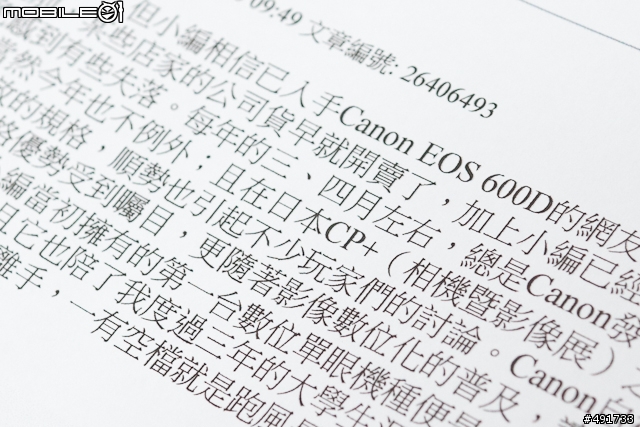 MOBILE01
09:49 文章編號: 26406493
但小編相信已入手Canon EOS 600D的網友
某些店家的公司貨早就開賣了，加上小編已經
感到有些失落。每年的三、四月左右，總是Canon發
當然今年也不例外；且在日本CP+（相機暨影像展）
致的規格，順勢也引起不少玩家們的討論。Canon
格優勢受到囑目，更隨著影像數位化的普及，
編當初擁有的第一台數位單眼機種便是
月它也陪了我度過三年的大學生
離手，一有空檔就是跑風
#491733